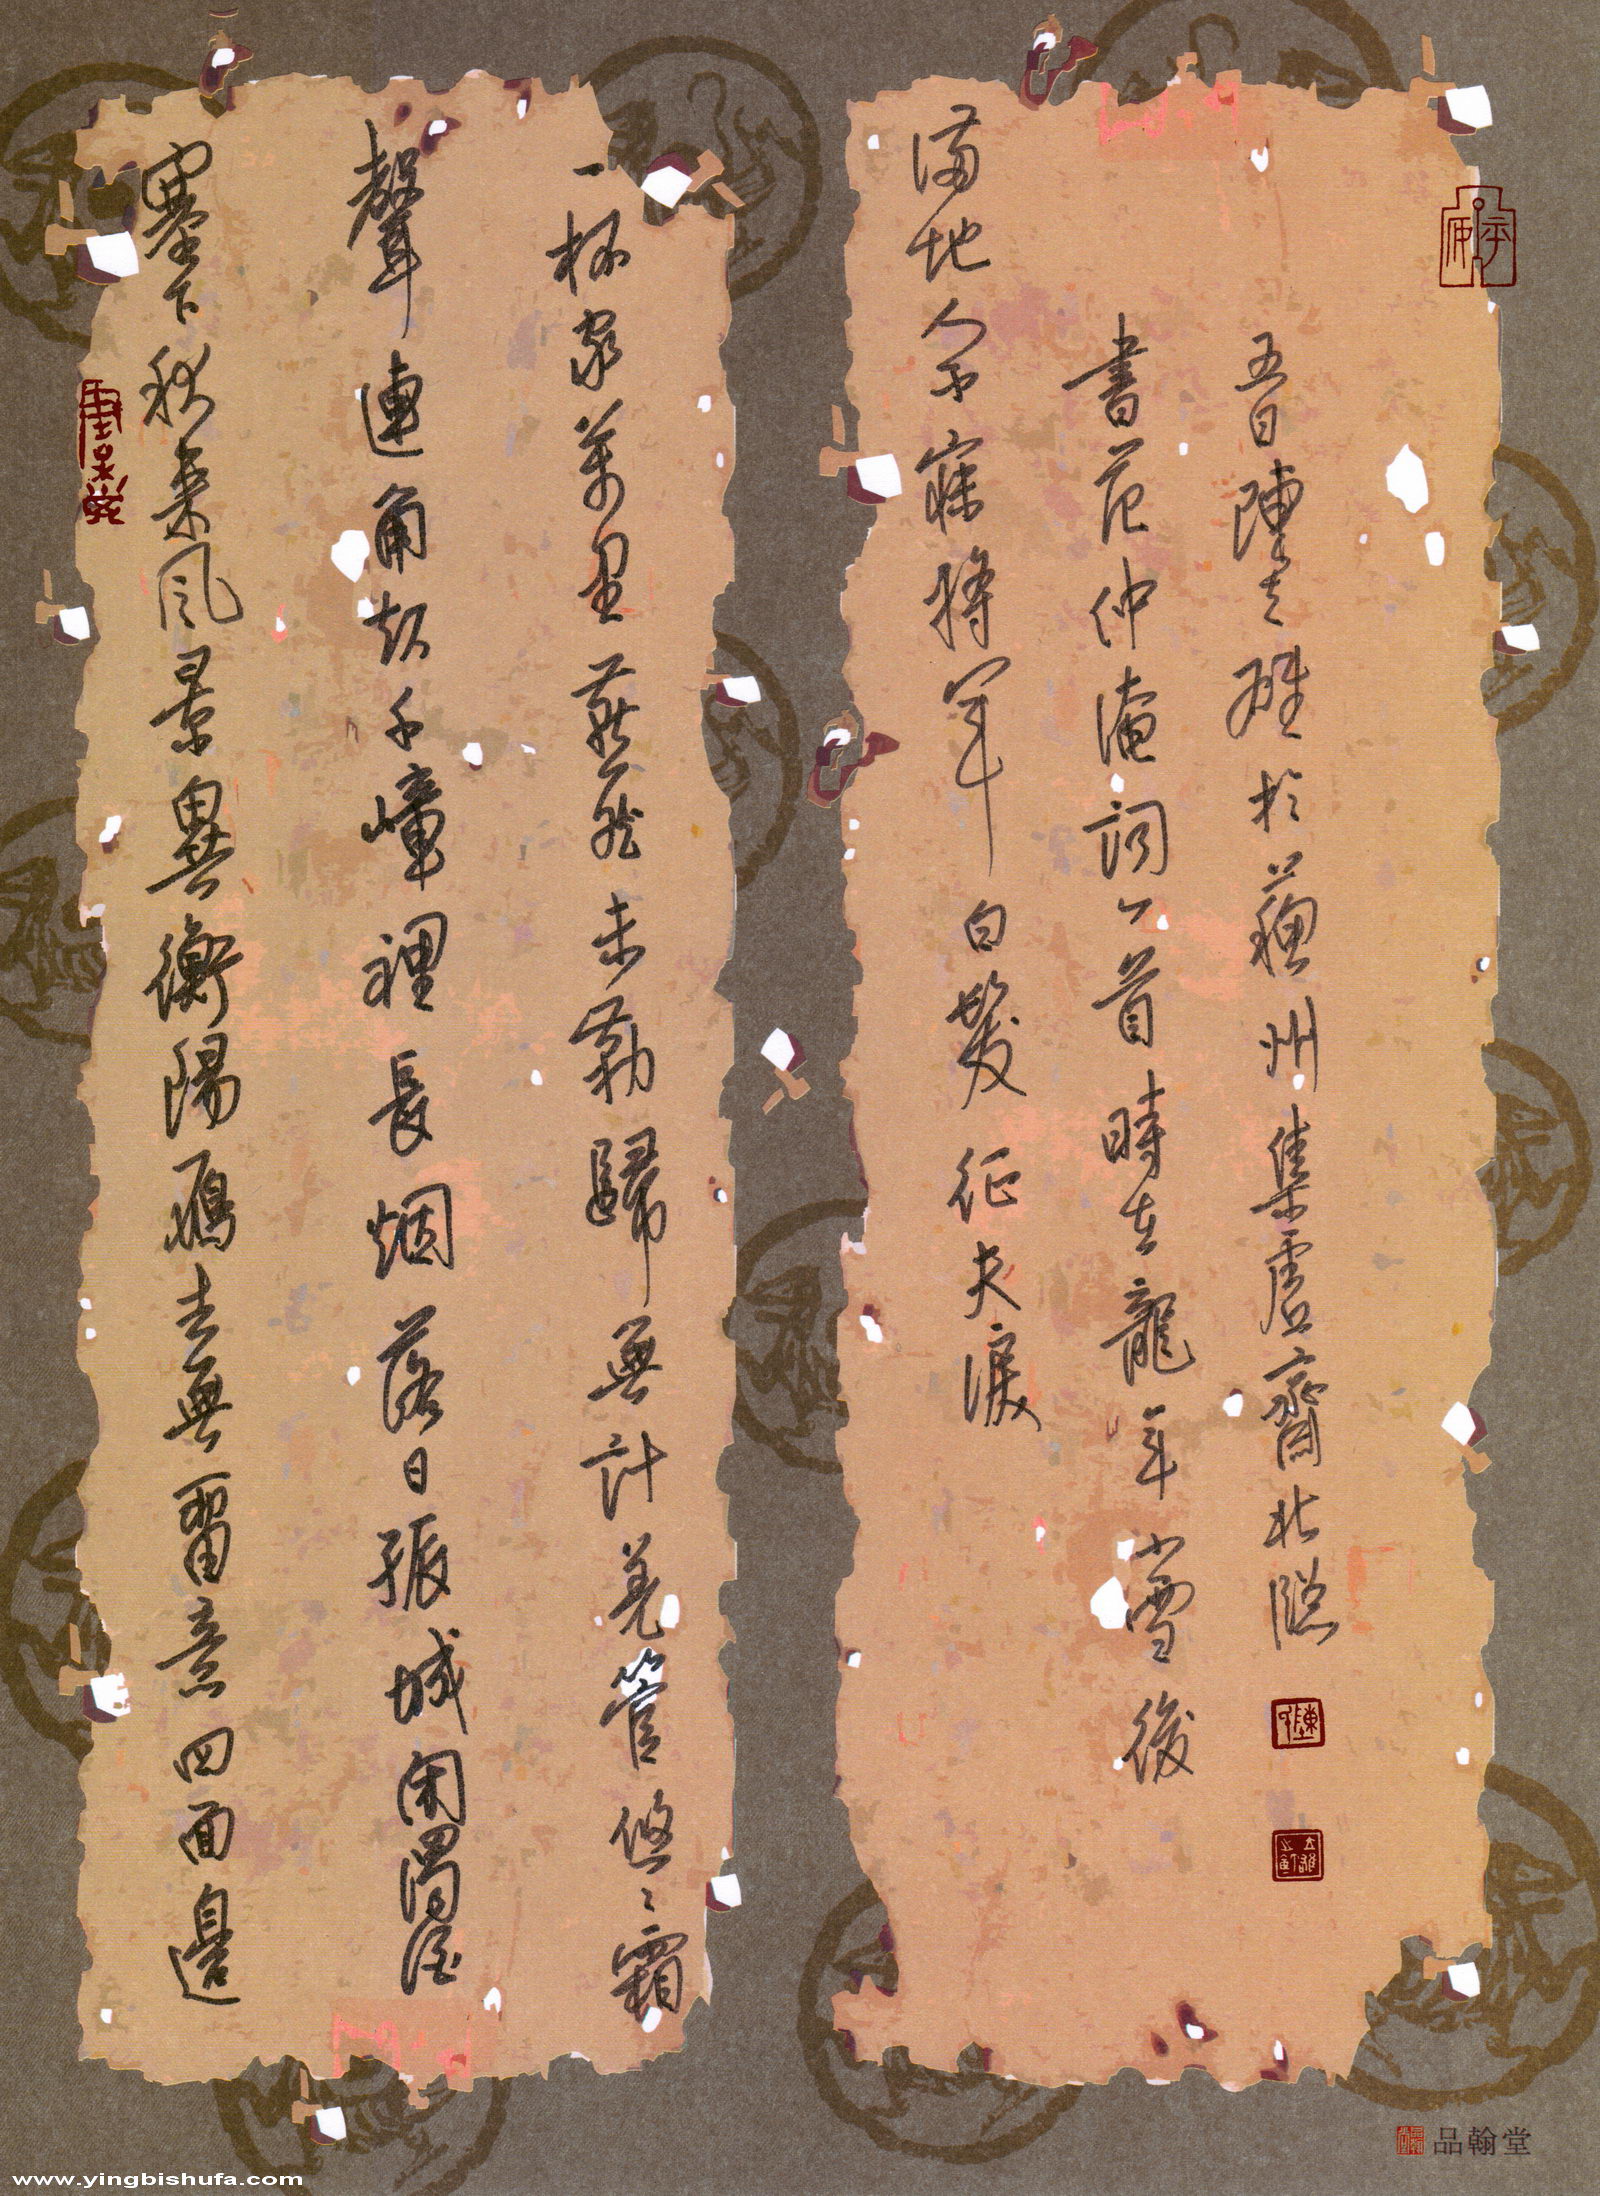 塞下秋來風景異衡陽鴈去無留意四面邊
聲連角起千嶂裡長烟落日孤城閉濁酒
一杯家萬里燕然未勒歸無計羌管悠〻霜
滿地人不寐將軍白髮征夫淚
書范仲淹詞一首時在龍年小雪後
五日陳立雄於蘇州集虛齋北牕
品翰堂
www.yingbishufa.com